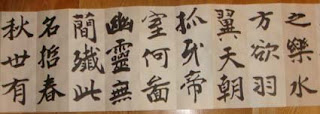 之樂水
方欲羽
翼天朝
抓牙帝
室何啚
幽靈無
簡殲此
名哲春
秋世有